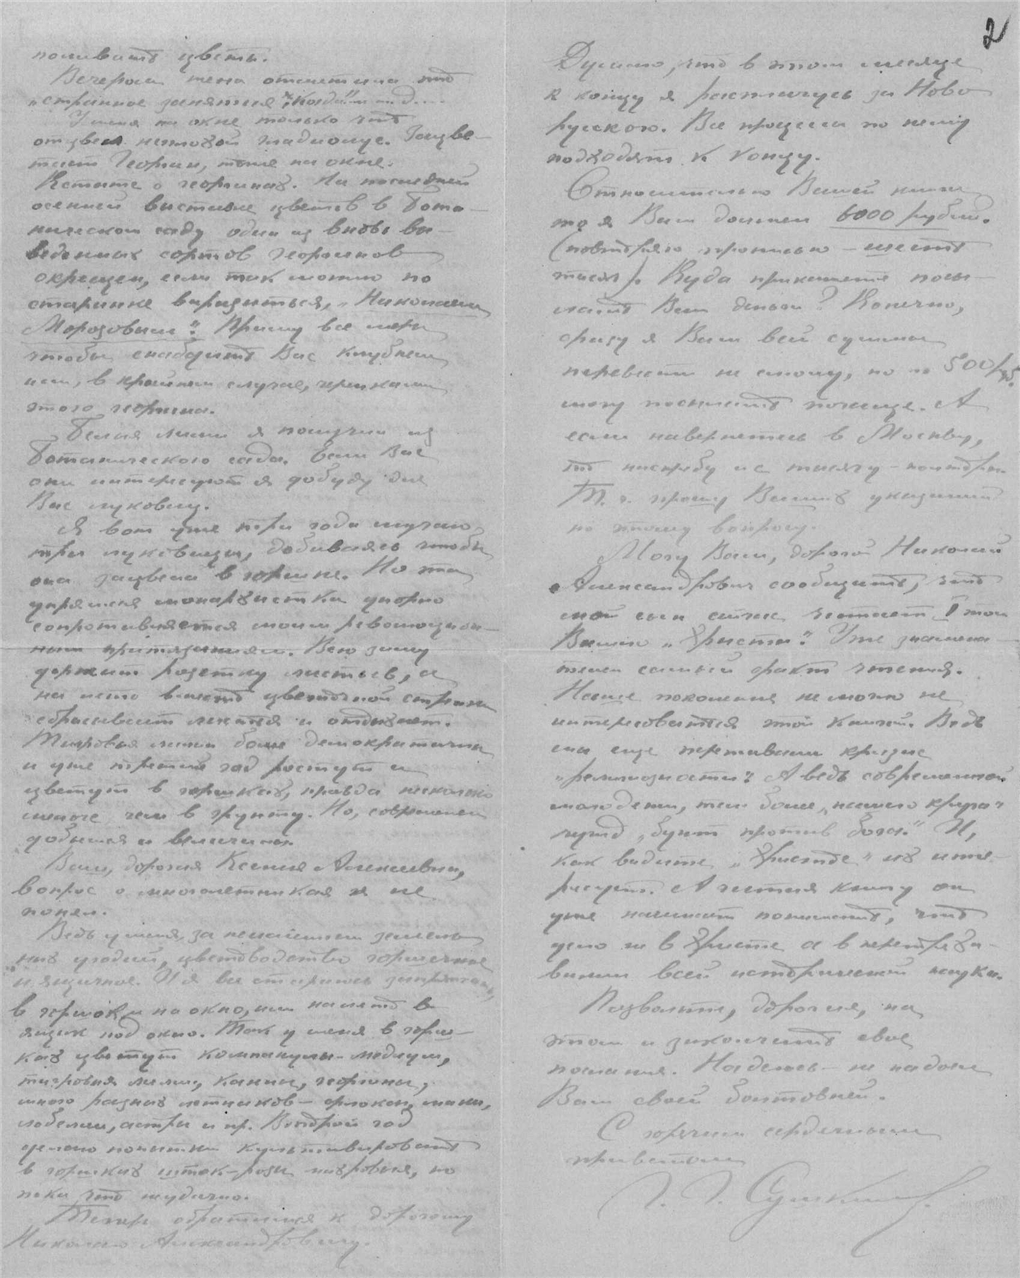 поливать цветы.
Вечером жена отметила что
"странное занятие". Когда
У меня на окне только что
отцвел неплохой гладиолус. Зацве-
тает георгин, тоже на окне.
Кстати о георгинах. На последней
осенней выставке цветов в Бота-
ническом саду один из вновь вы-
веденных сортов георгинов
окрещен, если так можно по
старинке выразиться, "Николаем
Морозовым". Приму все меры
чтобы снабдить Вас клубнем
или, в крайнем случае, черенками
этого георгина.
Белые лилии я получил из
Ботанического сада. Если Вас
они интересуют я добуду для
Вас луковиц.
Я вот уже три года мучаю
три луковицы, добиваясь чтобы
она зацвела в горшке. Но эта
упрямая монархистка упорно
сопротивляется моим революцион-
ным притязаниям. Всю зиму
держит розетку листьев, а
на лето вместо цветочной стрелки
сбрасывает листья и отдыхает.
Тигровые лилии более демократичны
и уже третий год растут и
цветут в горшках, правда несколько
меньше чем в грунту. Но, современем
добьемся и величины.
Ваш, дорогая Ксения Алексеевна,
вопрос о многолетниках я не
понял.
Ведь у меня, за неимением земель-
ных угодий, цветоводство горшечное
и ящичное. И я все стараюсь
в горшок и на окно, или на лето в
ящик под окно. Так у меня в горш-
ках цветут компанулы-медиум,
тигровые лилии, канны, георгины,
много разных летников - флоксы, маки,
лобелии, астры и пр. Второй год
делаю попытки культивировать
в горшках шток-розы махровые, но
пока что неудачно.
Теперь обратимся к дорогому
Николаю Александровичу.
2
Думаю, что в этом месяце
к концу я расплачусь за Ново
русскою. Все процессы по нему
подходят к концу.
Относительно Вашей книги
то я Вам должен 6000 рублей.
(повторяю прописью - шесть
тысяч). Куда прикажете посы-
лать Вам деньги? Конечно,
сразу я Вам всей суммы
перевести не смогу, но по 500/р.
могу посылать почаще. А
если навернетесь в Москву,
то наскребу и с тысячу - полторы.
Т. ч. прошу Ваших указаний
по этому вопросу.
Могу Вам, дорогой Николай
Александрович сообщить, что
мой сын сейчас читает I том
Вашего "Христа". Уже знамена-
телен самый факт чтения.
Наше поколение не могло не
интересоваться этой книгой. Ведь
мы еще переживали кризис
"религиозности". А ведь современной
молодежи, тем более нашего круга
чужд "бунт против бога". И,
как видите, "Христос" их инте-
ресует. А читая книгу он
уже начинает понимать, что
дело не в Христе а в перетряхи-
вании всей исторической науки.
Позвольте, дорогие, на
этом и закончить свое
послание. Надеюсь - не надоел
Вам своей болтовней.
С горячим сердечным
приветом